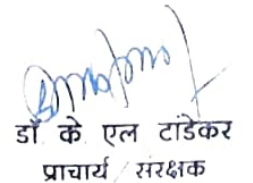 डॉ के एल टांडेकर
प्राचार्य / संरक्षक